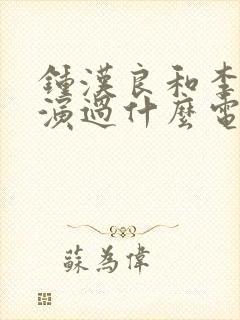 鍾漢良和李
演過什麼電
蘇為偉